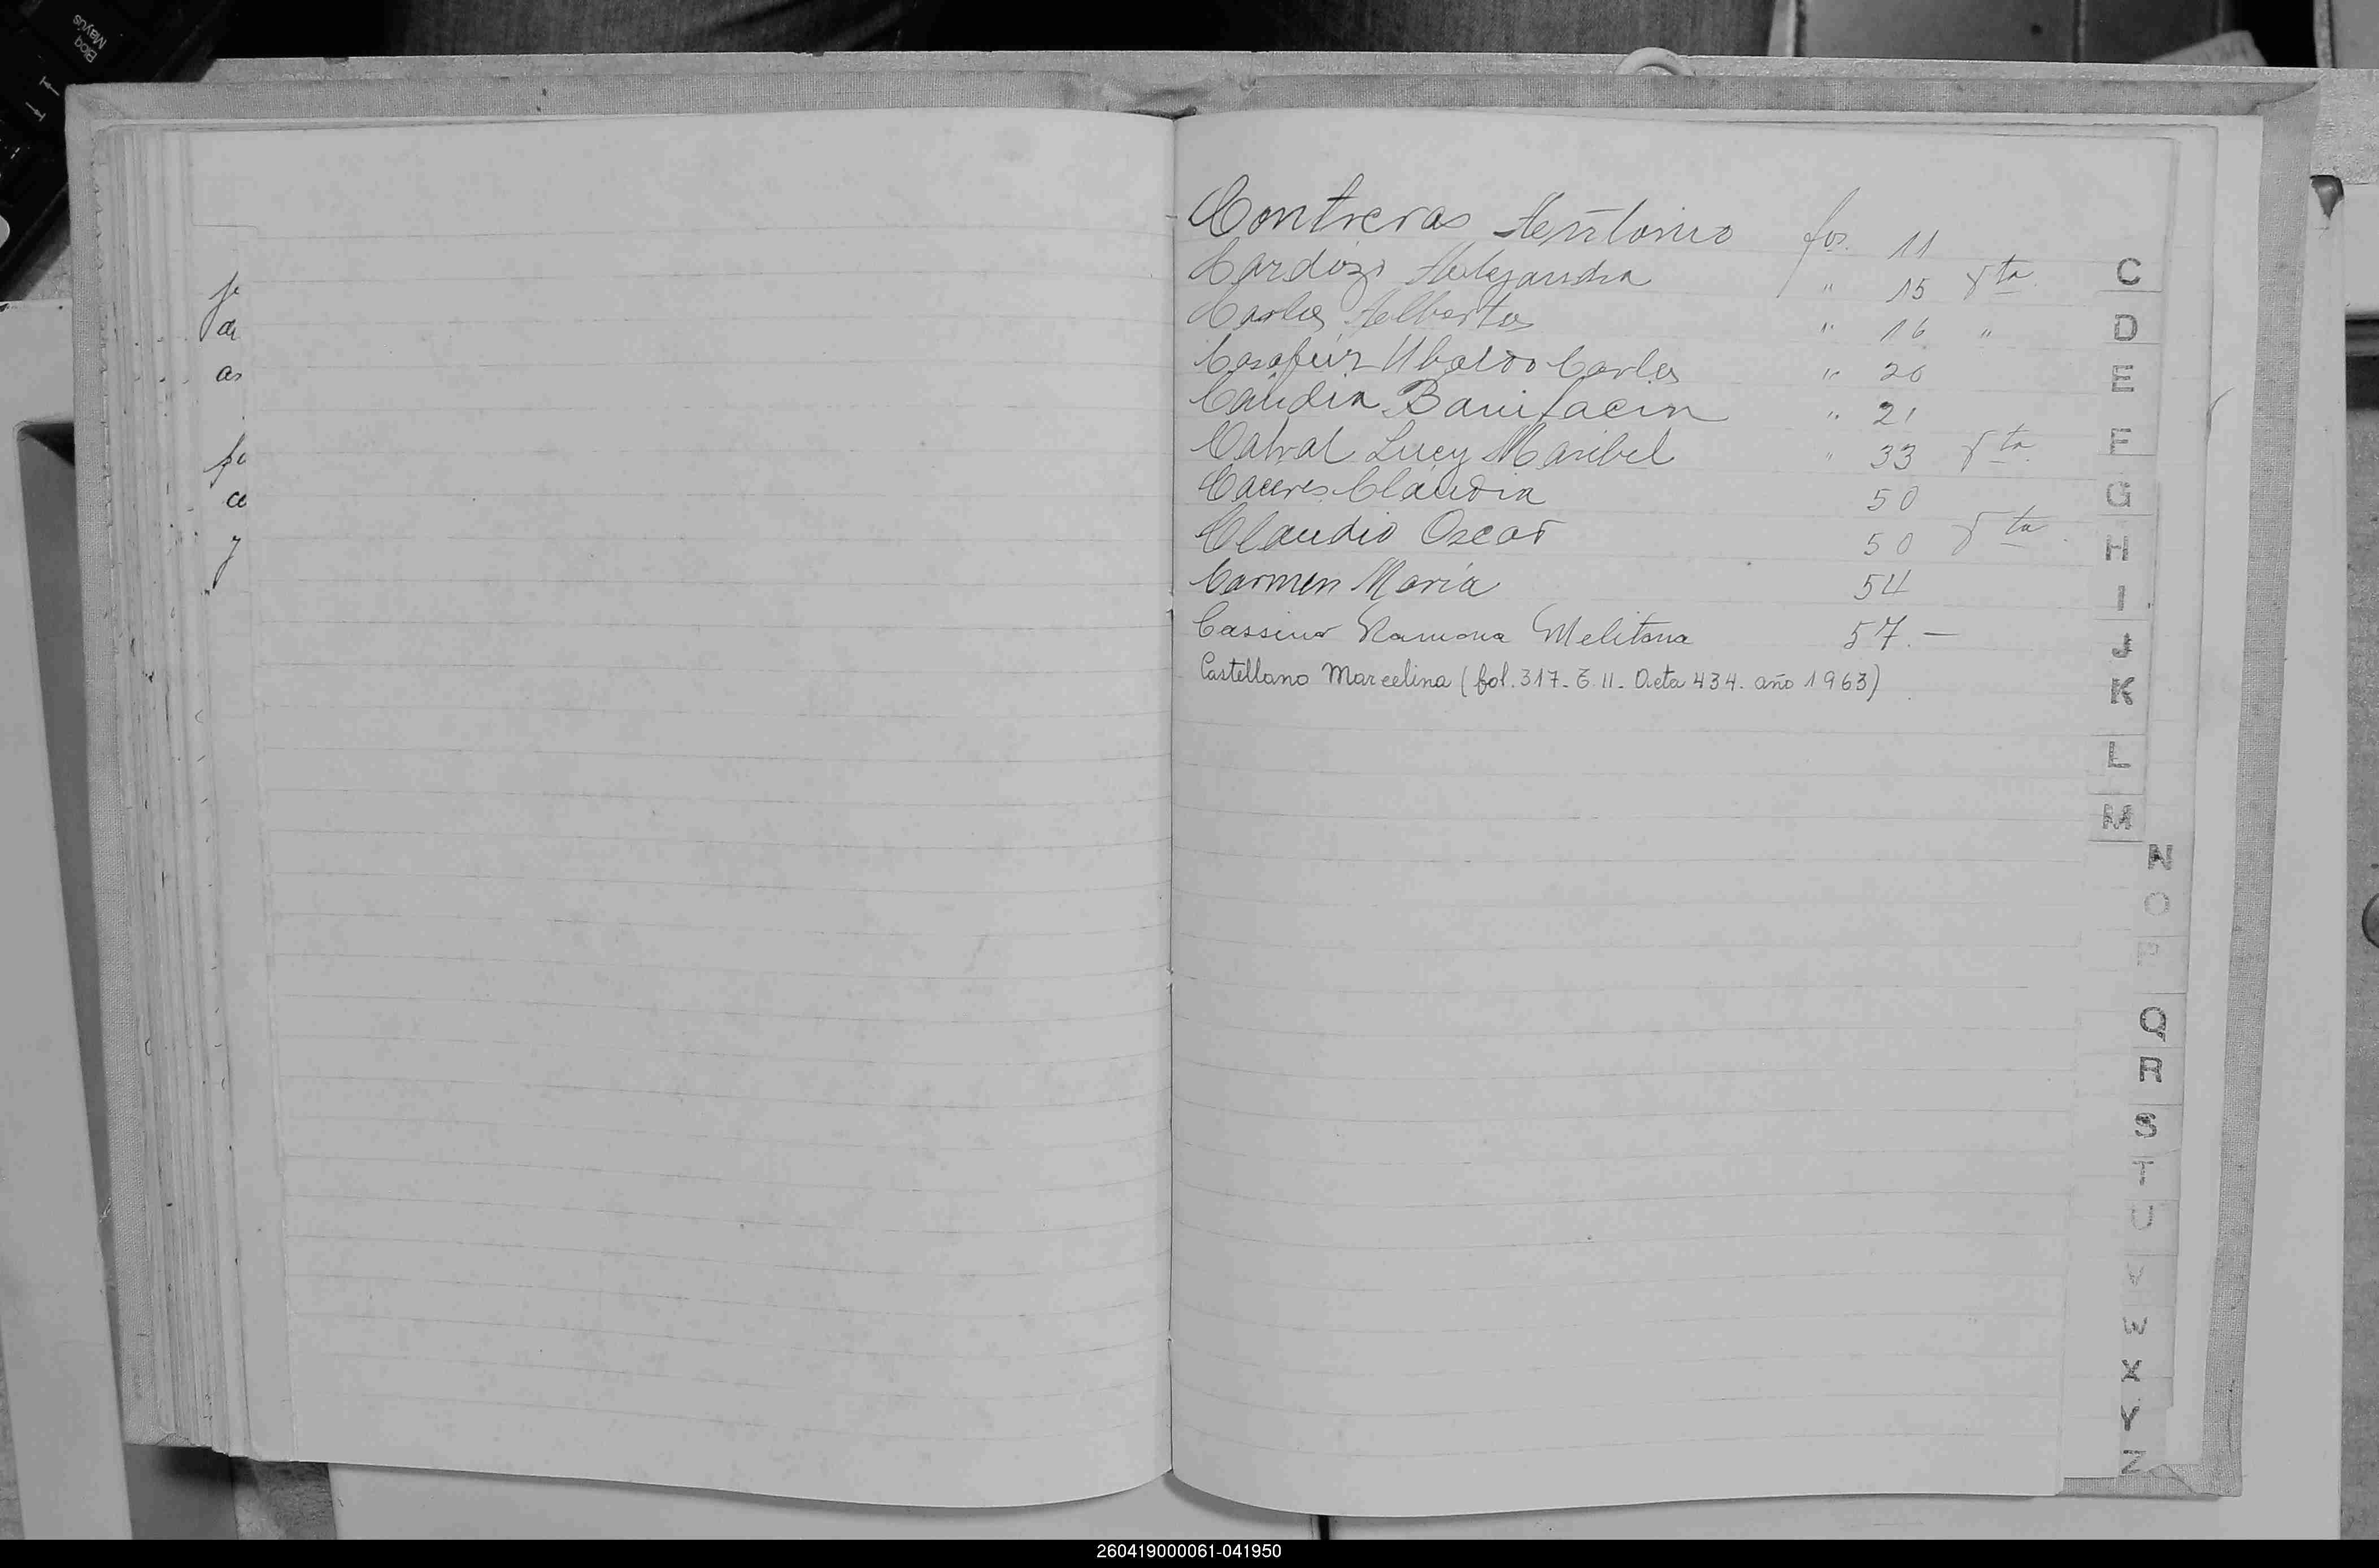 Contreras Antonio fos. 11
Cardozo Alejandra " 15 vta.
Carlos Alberto " 16 "
Ubaldo Carlos " 20
Claudia Bonifacia " 21
Cabral Lucy Maribel " 33 vta.
Caceres Claudia 50
Claudio Oscar 50 vta.
Carmen María 54
Cassino Ramona Melitona 57.-
Castellano Marcelina (fol. 317- T. II- Acta 434. año 1963)
C
D
E
F
G
H
I
J
K
L
M
N
O
P
Q
R
S
T
U
V
W
X
Y
Z
Bloq
Mayús
260419000061-041950